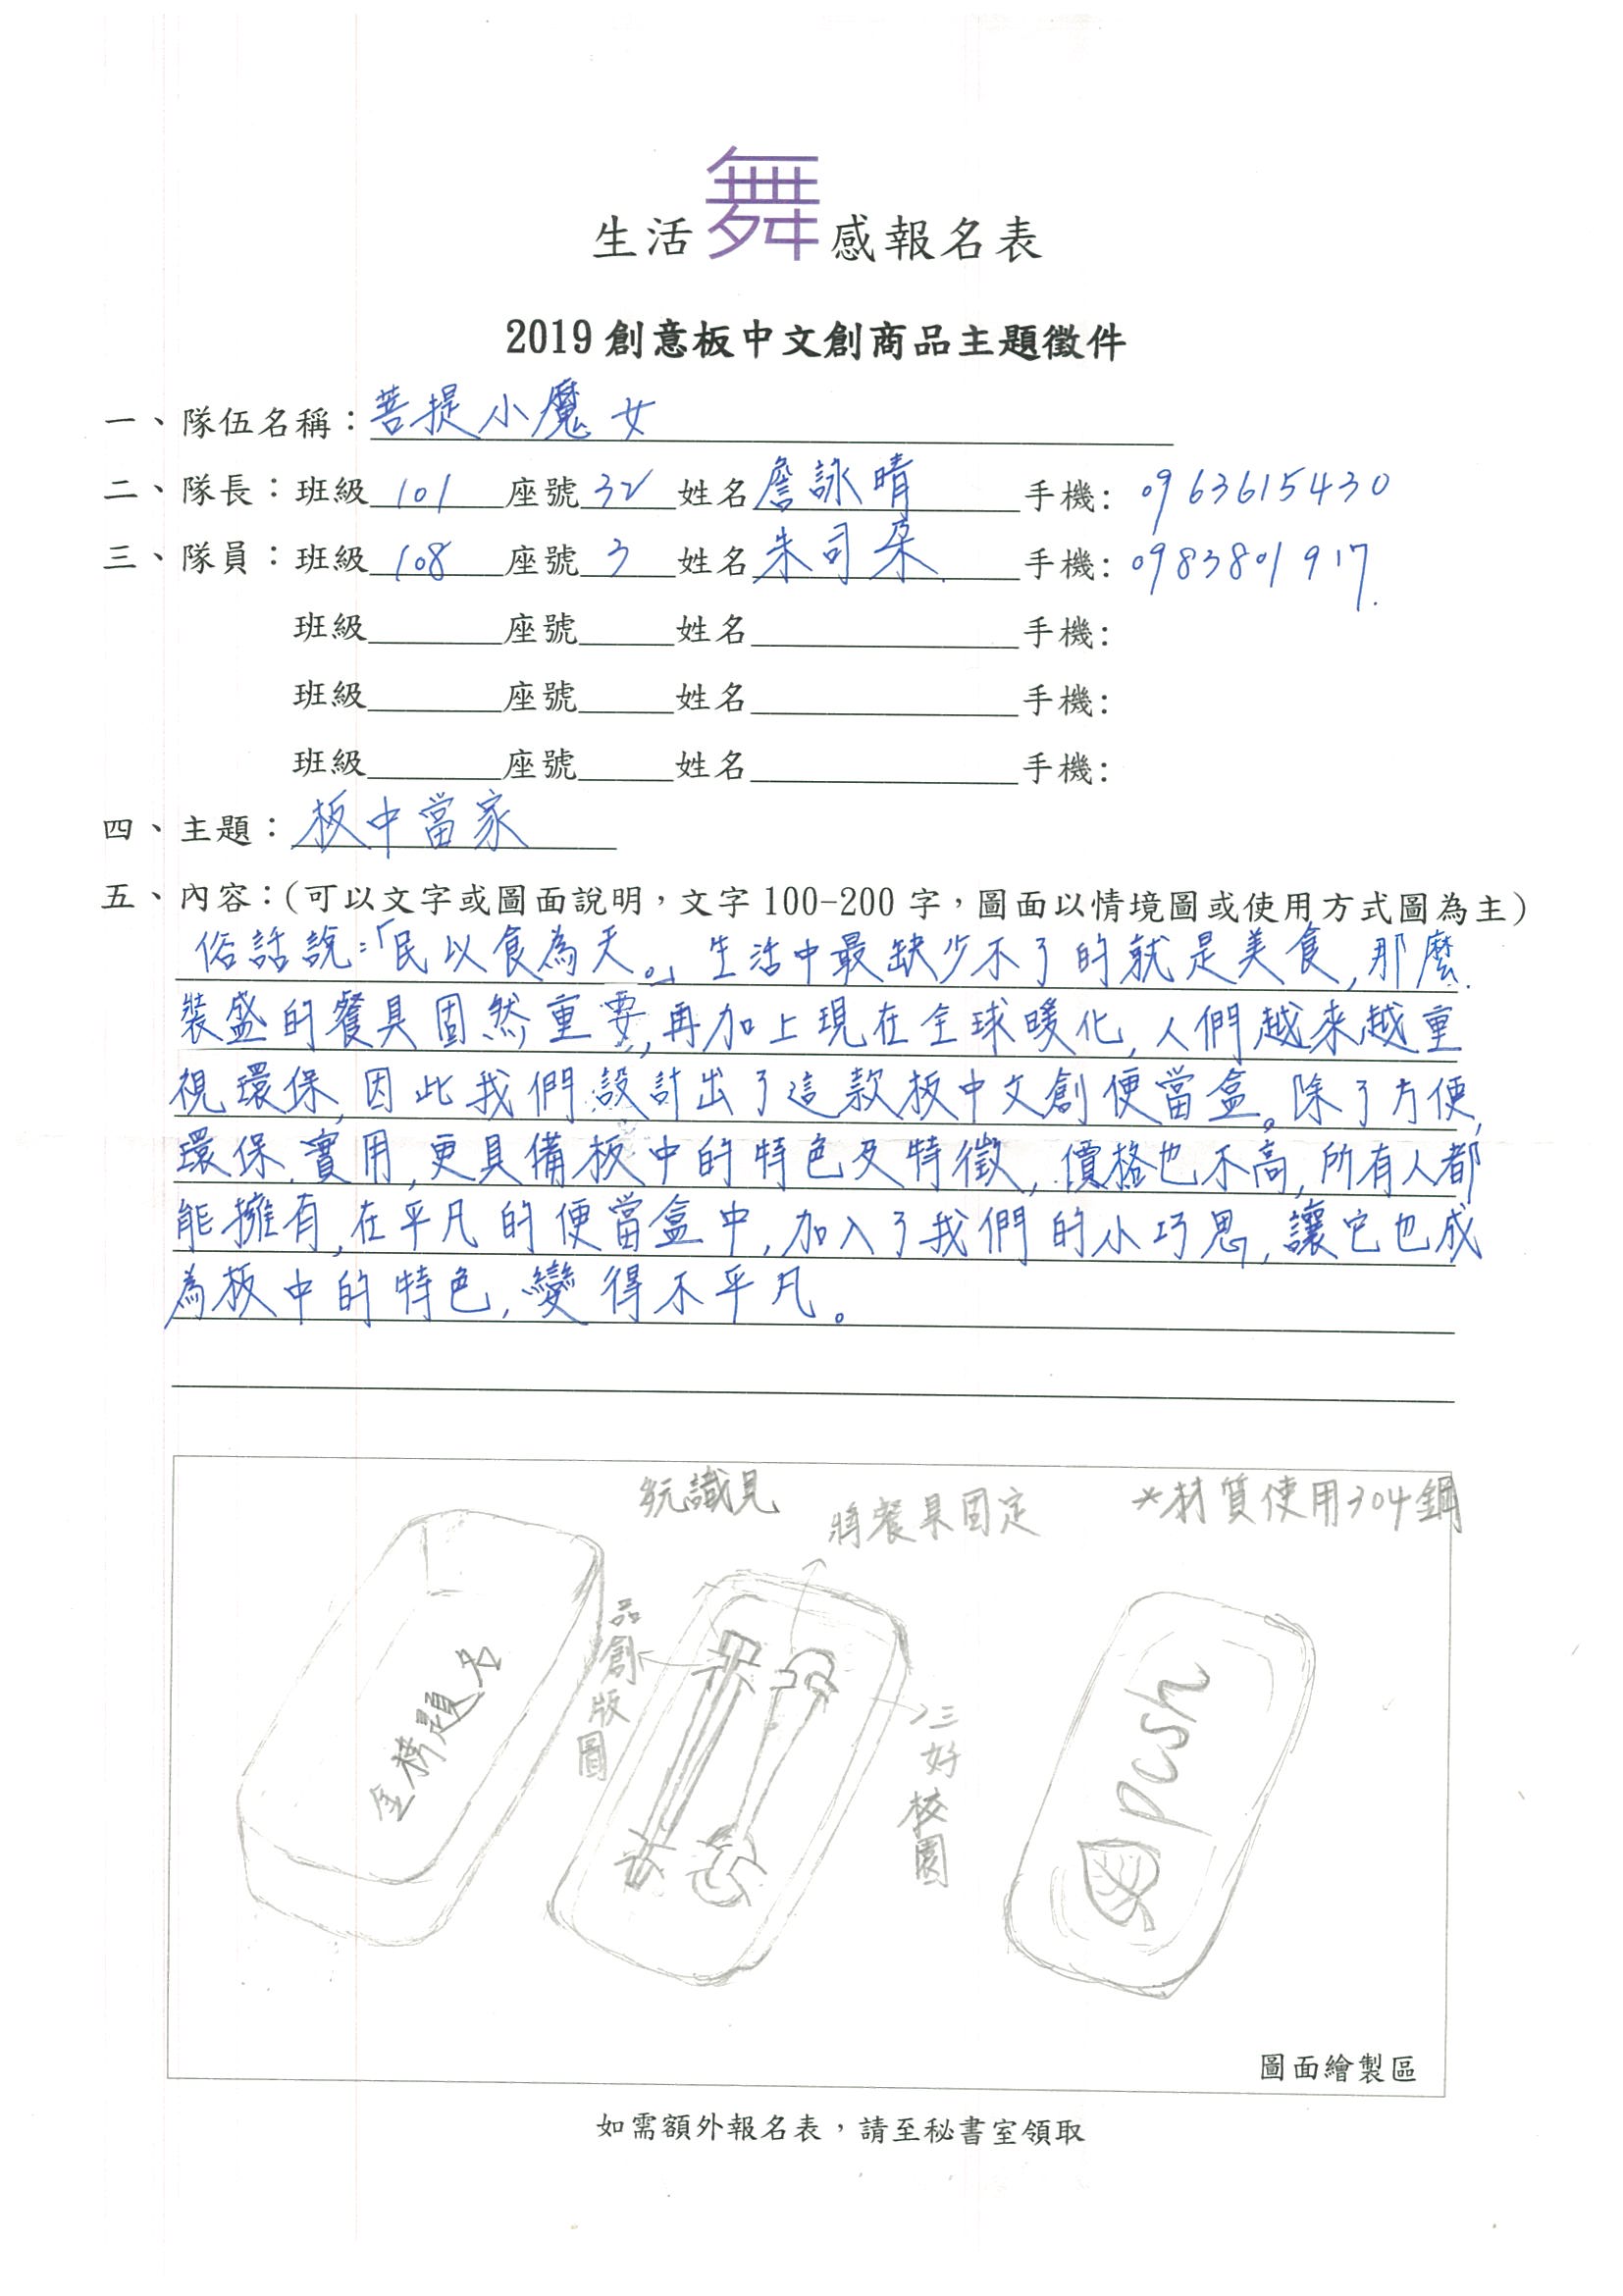 生活舞感報名表
2019創意板中文創商品主題徵件
一、隊伍名稱：菩提小魔女
二、隊長：班級101座號32姓名詹詠晴手機：0963615430
三、隊員：班級108座號3姓名朱司朵手機：0983801917.
班級______座號____姓名____________手機：
班級______座號____姓名____________手機：
班級______座號____姓名____________手機：
四、主題：板中當家
五、內容：(可以文字或圖面說明，文字100-200字，圖面以情境圖或使用方式圖為主)
俗話說：「民以食為天。」生活中最缺少不了的就是美食,那麼
裝盛的餐具固然重要,再加上現在全球暖化,人們越來越重
視環保,因此我們設計出了這款板中文創便當盒。除了方便,
環保、實用,更具備板中的特色及特徵,價格也不高,所有人都
能擁有,在平凡的便當盒中,加入了我們的小巧思,讓它也成
為板中的特色,變得不平凡。
統識見
將餐具固定
*材質使用304鋼
金榜題名
品創版圖
三好校園
pcsh
圖面繪製區
如需額外報名表，請至秘書室領取